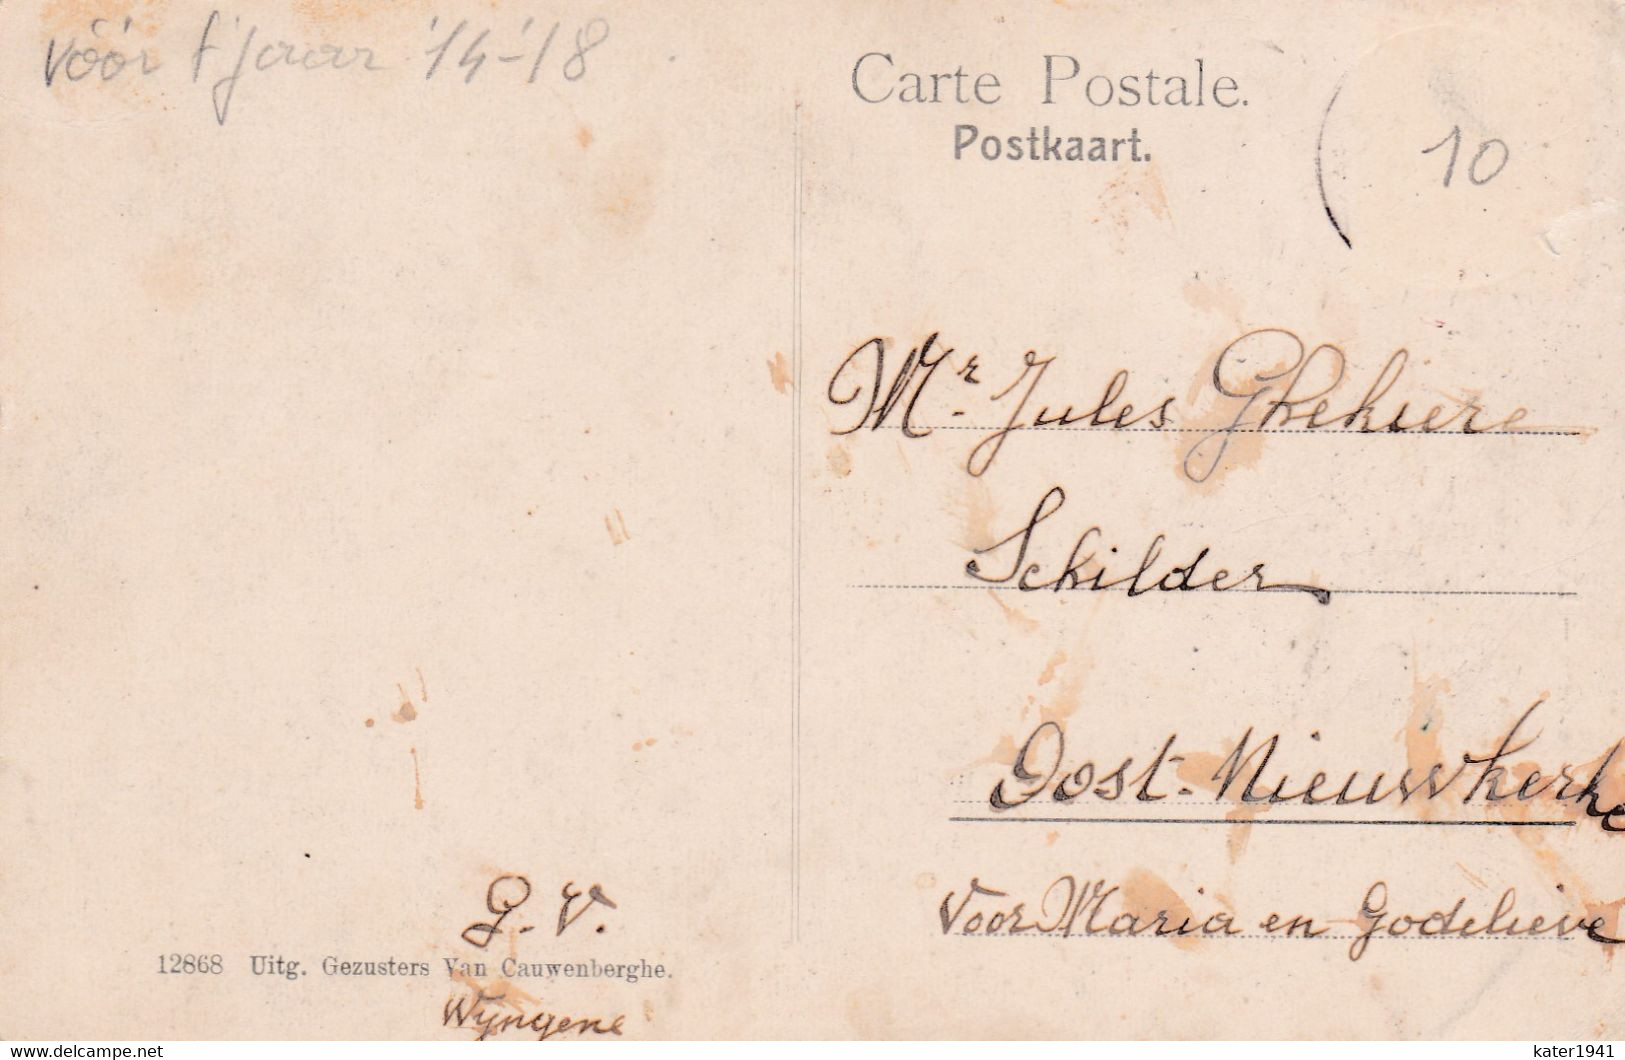 vóór t'jaar '14-'18
Carte Postale.
Postkaart.
10
Mr. Jules Ghekiere
Schilder
Oost-Nieuwkerke
Voor Maria en Godelieve
G. V.
12868 Uitg. Gezusters Van Cauwenberghe.
Wyngene
www.delcampe.net
kater1941